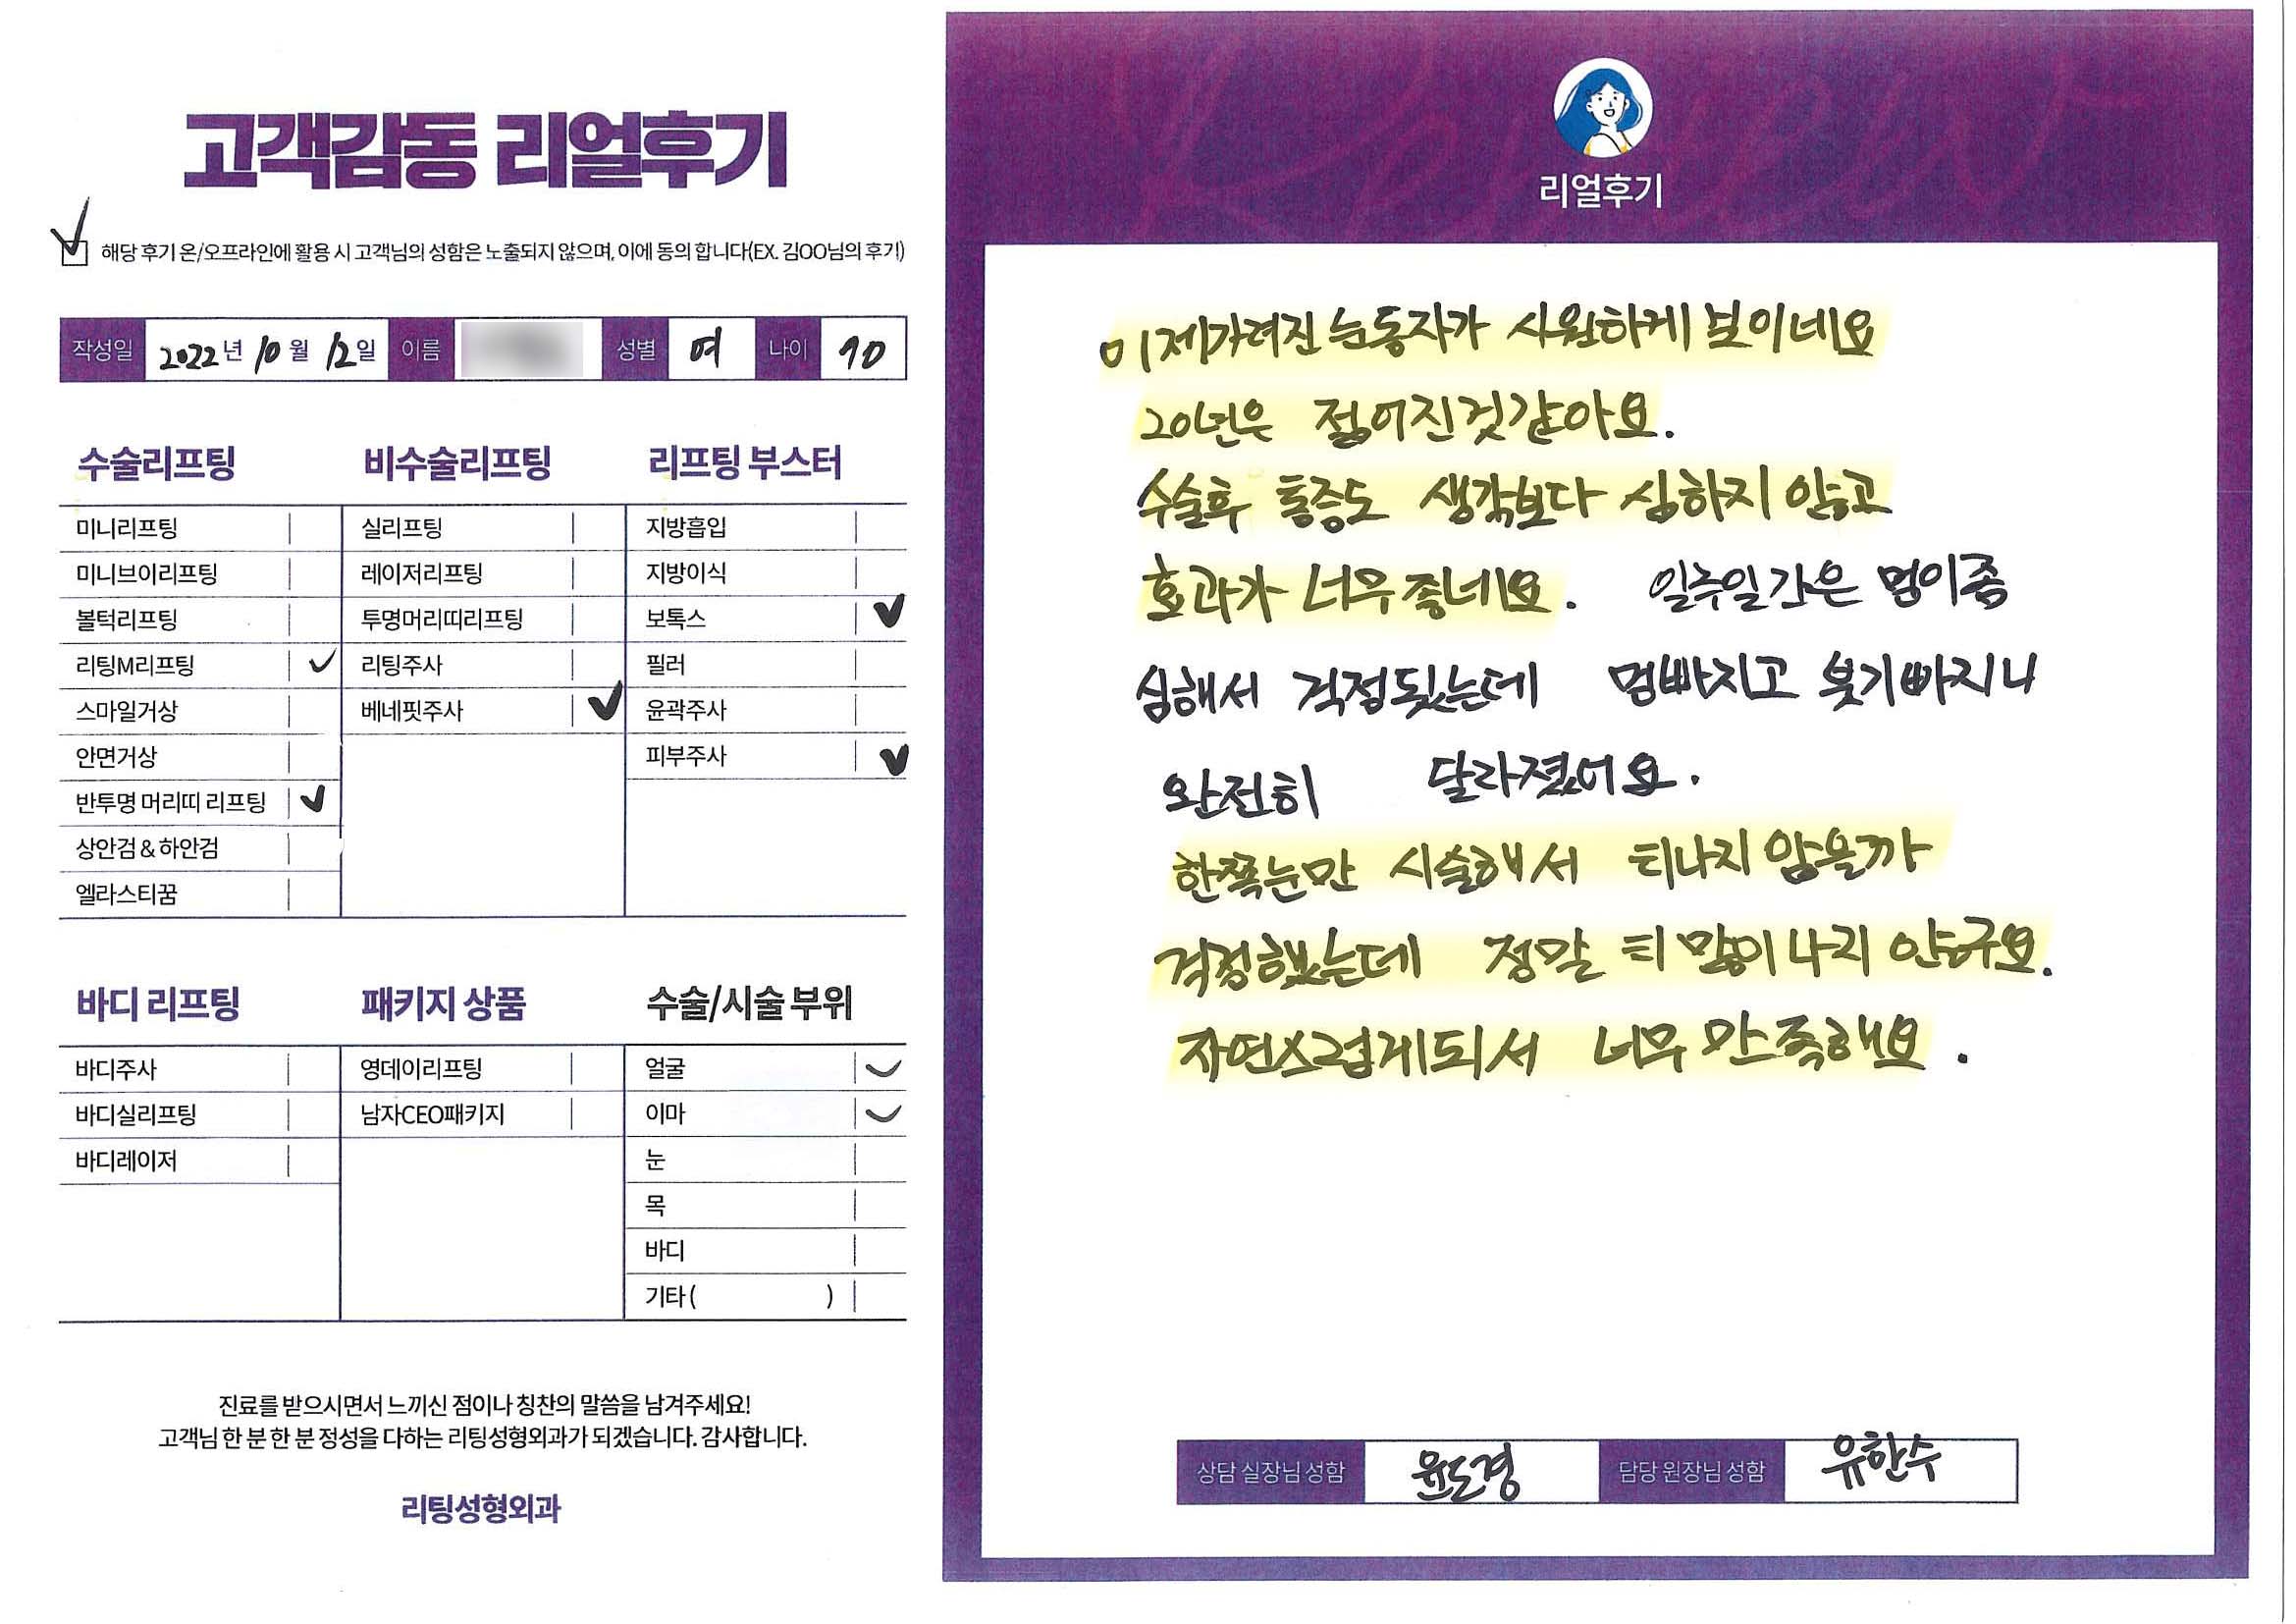 고객감동 리얼후기
해당 후기 온/오프라인에 활용 시 고객님의 성함은 노출되지 않으며, 이에 동의 합니다(EX. 김OO님의 후기)
작성일 2022년 10월 12일 이름 성별 여 나이 70
수술리프팅
미니리프팅
미니브이리프팅
볼턱리프팅
리팅M리프팅
스마일거상
안면거상
반투명 머리띠 리프팅
상안검 & 하안검
엘라스티꿈
비수술리프팅
실리프팅
레이저리프팅
투명머리띠리프팅
리팅주사
베네핏주사
리프팅 부스터
지방흡입
지방이식
보톡스
필러
윤곽주사
피부주사
바디 리프팅
바디주사
바디실리프팅
바디레이저
패키지 상품
영데이리프팅
남자CEO패키지
수술/시술 부위
얼굴
이마
눈
목
바디
기타 ( )
진료를 받으시면서 느끼신 점이나 칭찬의 말씀을 남겨주세요!
고객님 한 분 한 분 정성을 다하는 리팅성형외과가 되겠습니다. 감사합니다.
리팅성형외과
리얼후기
이제가려진 눈동자가 시원하게 보이네요
20년은 젊어진것같아요.
수술후 통증도 생각보다 심하지 않고
효과가 너무좋네요. 일주일간은 멍이좀
심해서 걱정됬는데 멍빠지고 붓기빠지니
완전히 달라졌어요.
한쪽눈만 시술해서 티나지 않을까
걱정했는데 정말 티 많이 나지 안구요.
자연스럽게되서 너무 만족해요.
상담 실장님 성함 윤도경 담당 원장님 성함 유한수